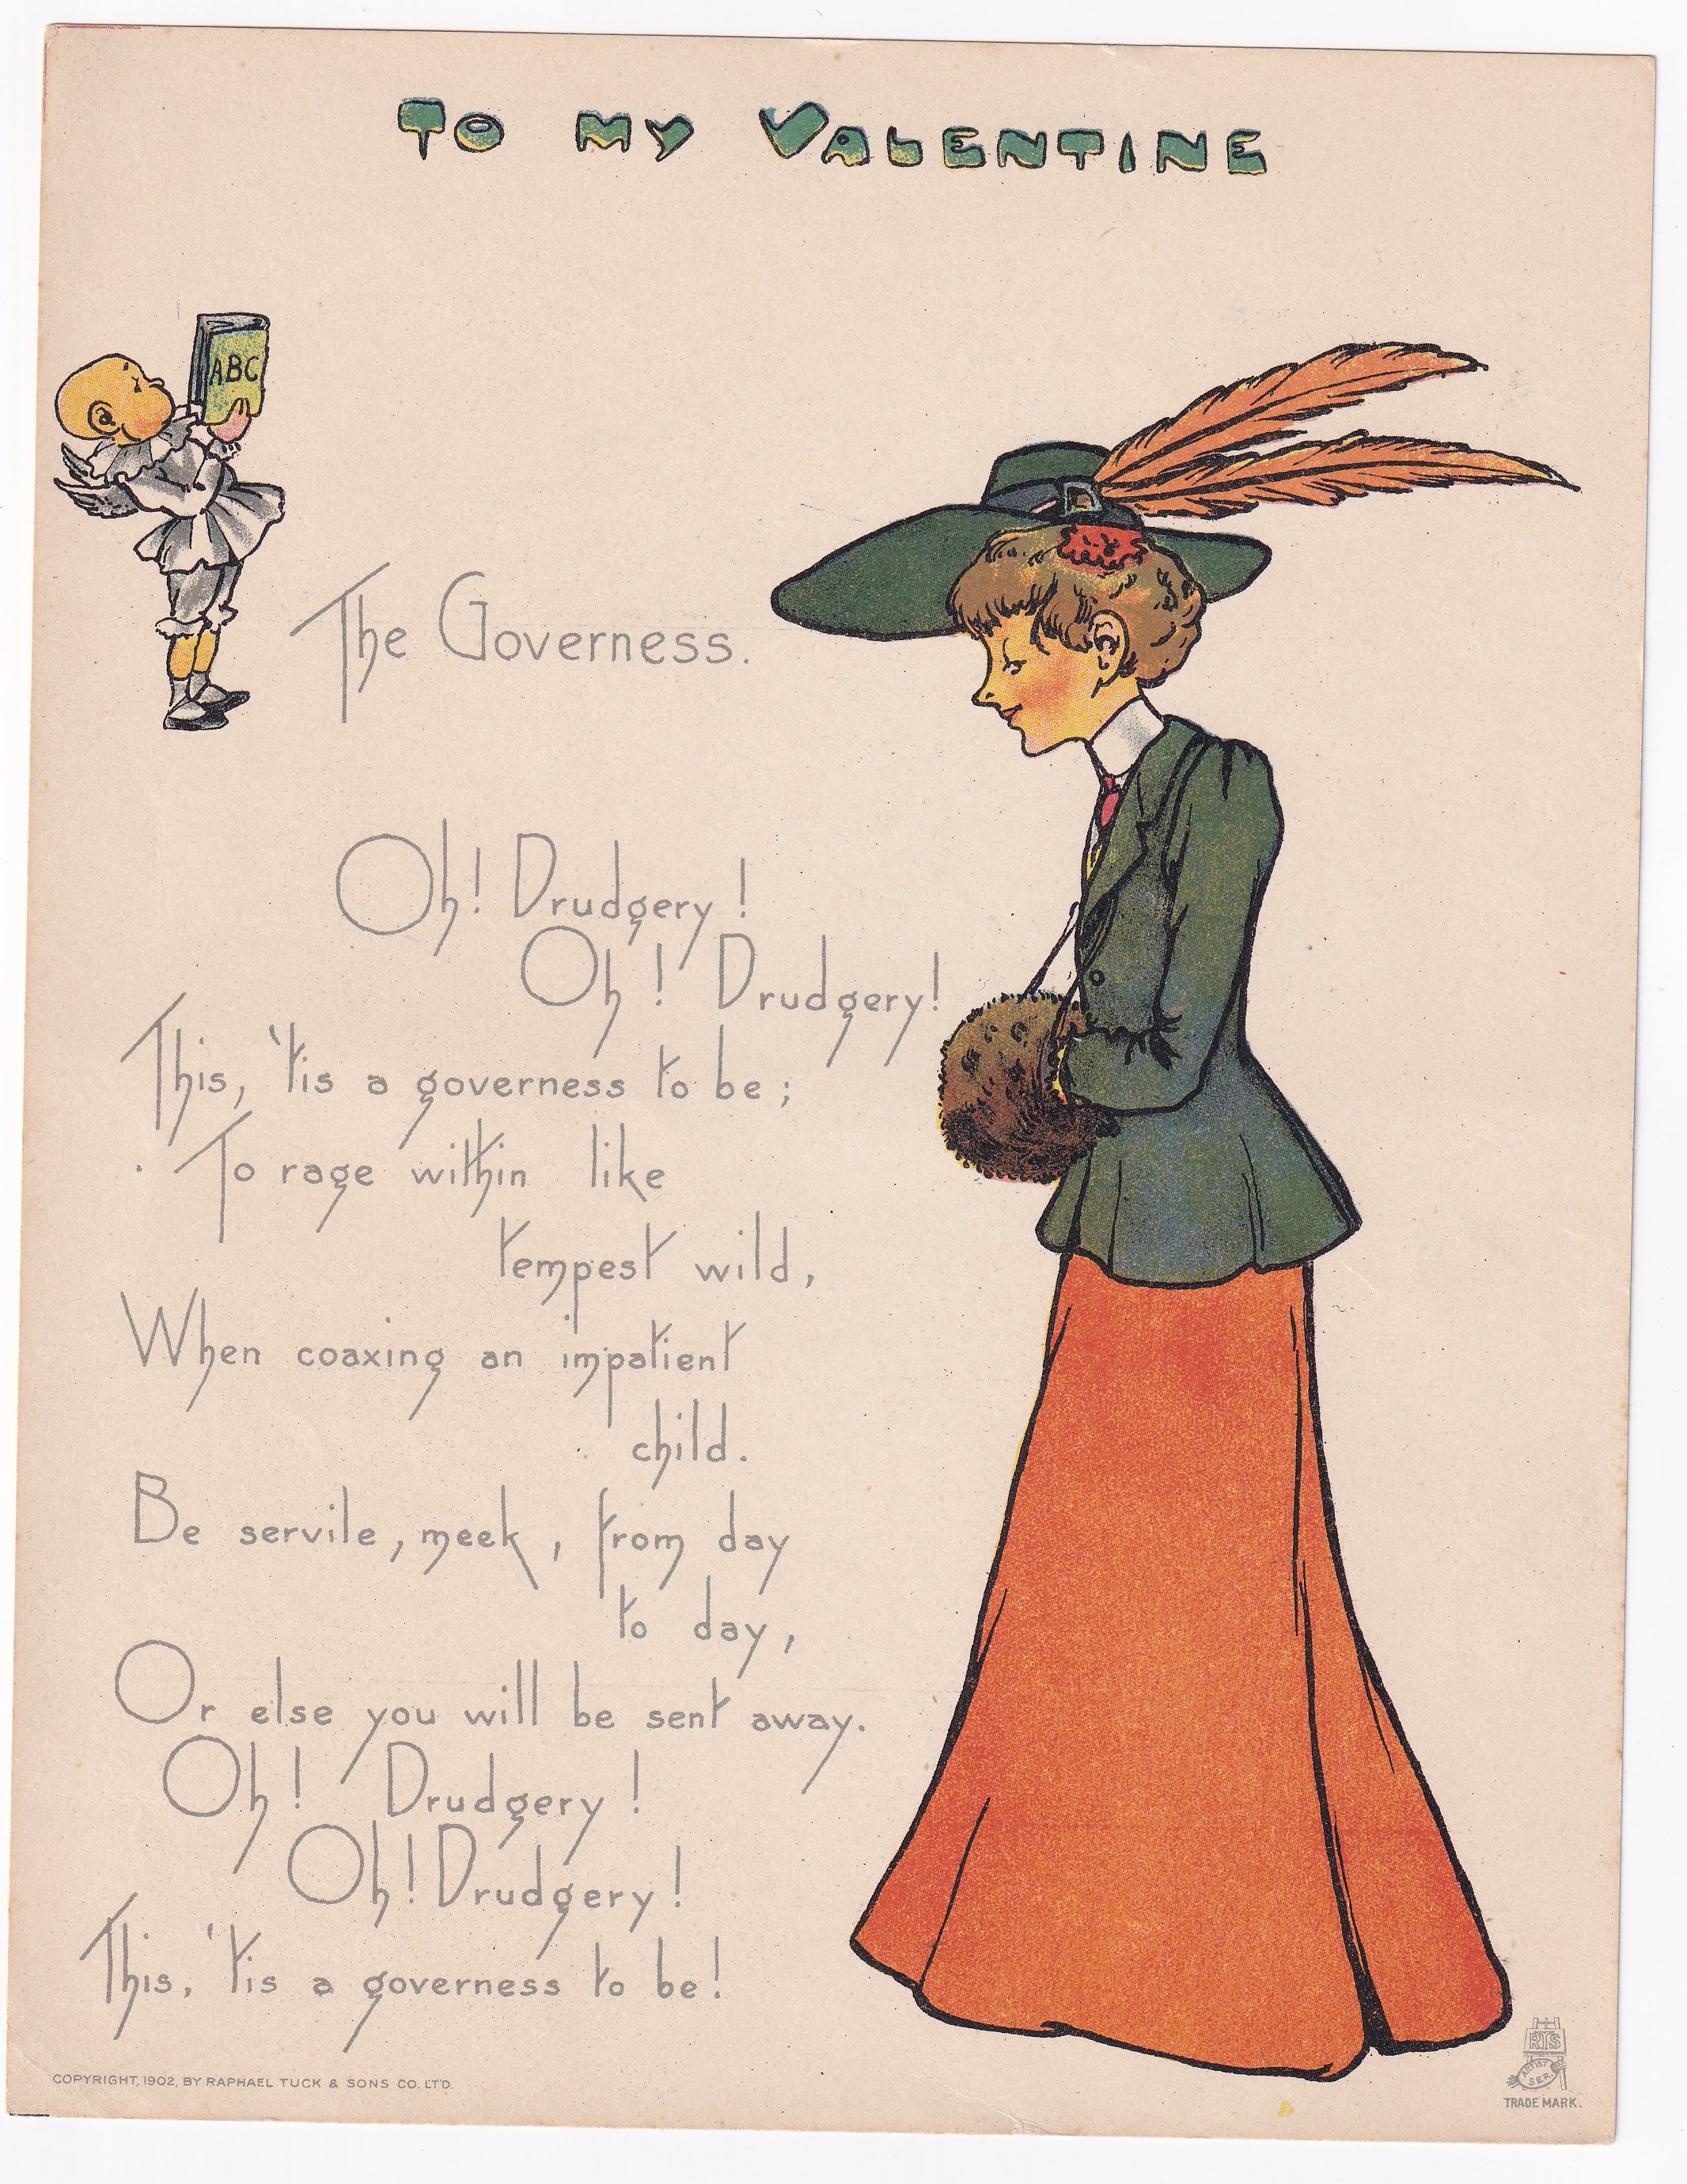 To My Valentine
ABC
The Governess.
Oh! Drudgery!
Oh! Drudgery!
This, 'tis a governess to be;
To rage within like
tempest wild,
When coaxing an impatient
child.
Be servile, meek, from day
to day,
Or else you will be sent away.
Oh! Drudgery!
Oh! Drudgery!
This, 'tis a governess to be!
COPYRIGHT, 1902, BY RAPHAEL TUCK & SONS CO. LT'D.
RTS
ARTIST
SER.
TRADE MARK.